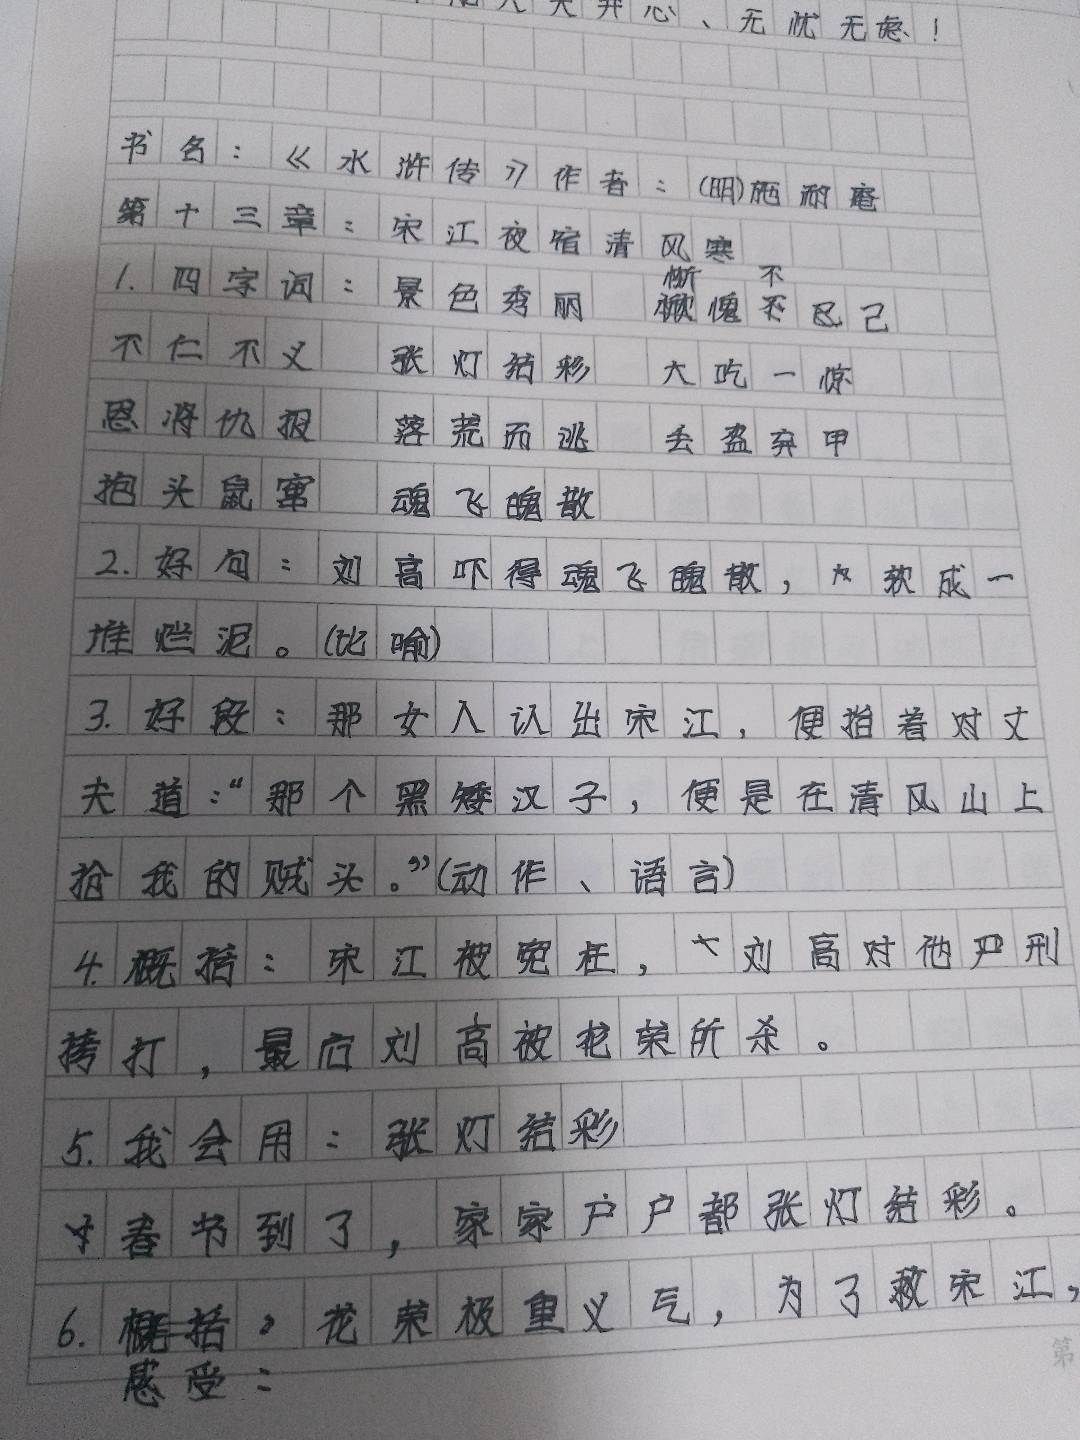 天开心、无忧无虑!
书名:《水浒传》作者:(明)施耐庵
第十三章:宋江夜宿清风寨
1.四字词:景色秀丽 惭愧不已
不仁不义 张灯结彩 大吃一惊
恩将仇报 落荒而逃 丢盔弃甲
抱头鼠窜 魂飞魄散
2.好句:刘高吓得魂飞魄散,软成一
堆烂泥。(比喻)
3.好段:那女人认出宋江,便指着对丈
夫道:“那个黑矮汉子,便是在清风山上
抢我的贼头。”(动作、语言)
4.概括:宋江被冤枉,刘高对他严刑
拷打,最后刘高被花荣所杀。
5.我会用:张灯结彩
春节到了,家家户户都张灯结彩。
6.概括:花荣极重义气,为了救宋江,
感受:
第